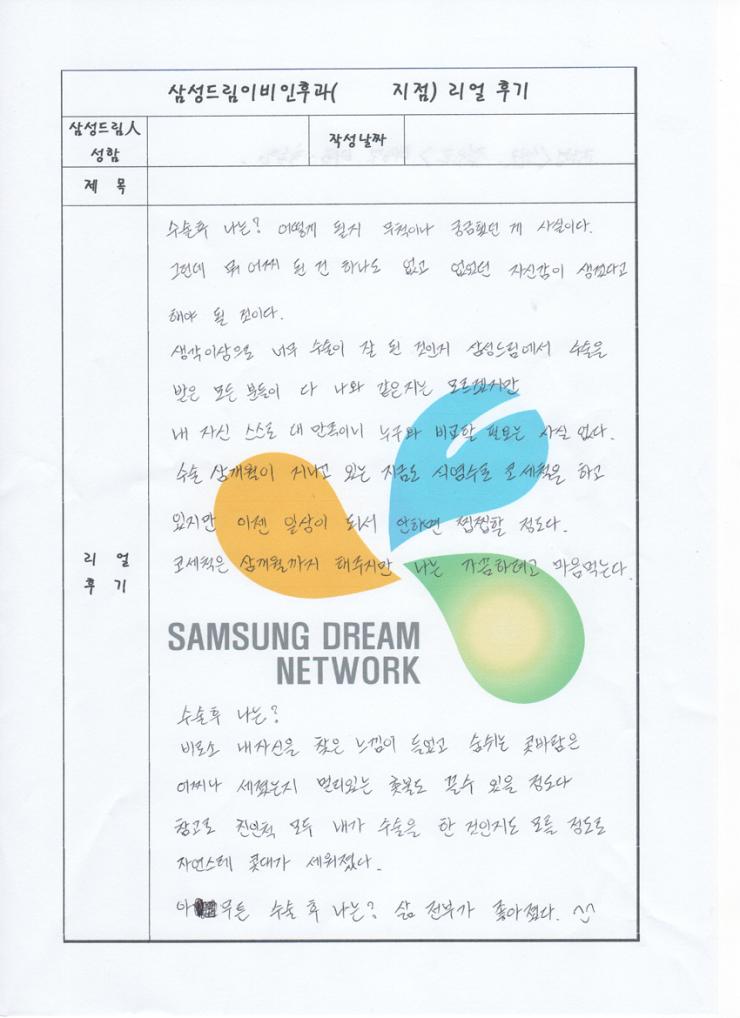 삼성드림이비인후과( 지점) 리얼 후기
삼성드림人
성함
작성날짜
제 목
리 얼
후 기
수술후 나는? 어떻게 될지 무척이나 궁금했던 게 사실이다.
그런데 뭐 어찌 된 건 하나도 없고 없었던 자신감이 생겼다고
해야 될 것이다.
생각이상으로 너무 수술이 잘 된 것인지 삼성드림에서 수술을
받은 모든 분들이 다 나와 같은지는 모르겠지만
내 자신 스스로 대 만족이니 누구와 비교할 필요는 사실 없다.
수술 삼개월이 지나고 있는 지금도 식염수로 코세척을 하고
있지만 이젠 일상이 되서 안하면 찝찝할 정도다.
코세척은 삼개월까지 해주지만 나는 가끔하려고 마음먹는다.
SAMSUNG DREAM
NETWORK
수술후 나는?
비로소 내자신을 찾은 느낌이 들었고 숨쉬는 콧바람은
어찌나 세졌는지 멀리있는 촛불도 끌수 있을 정도다
참고로 친인척 모두 내가 수술을 한 것인지도 모를 정도로
자연스레 콧대가 세워졌다.
아무튼 수술 후 나는? 삶 전부가 좋아졌다. ^^